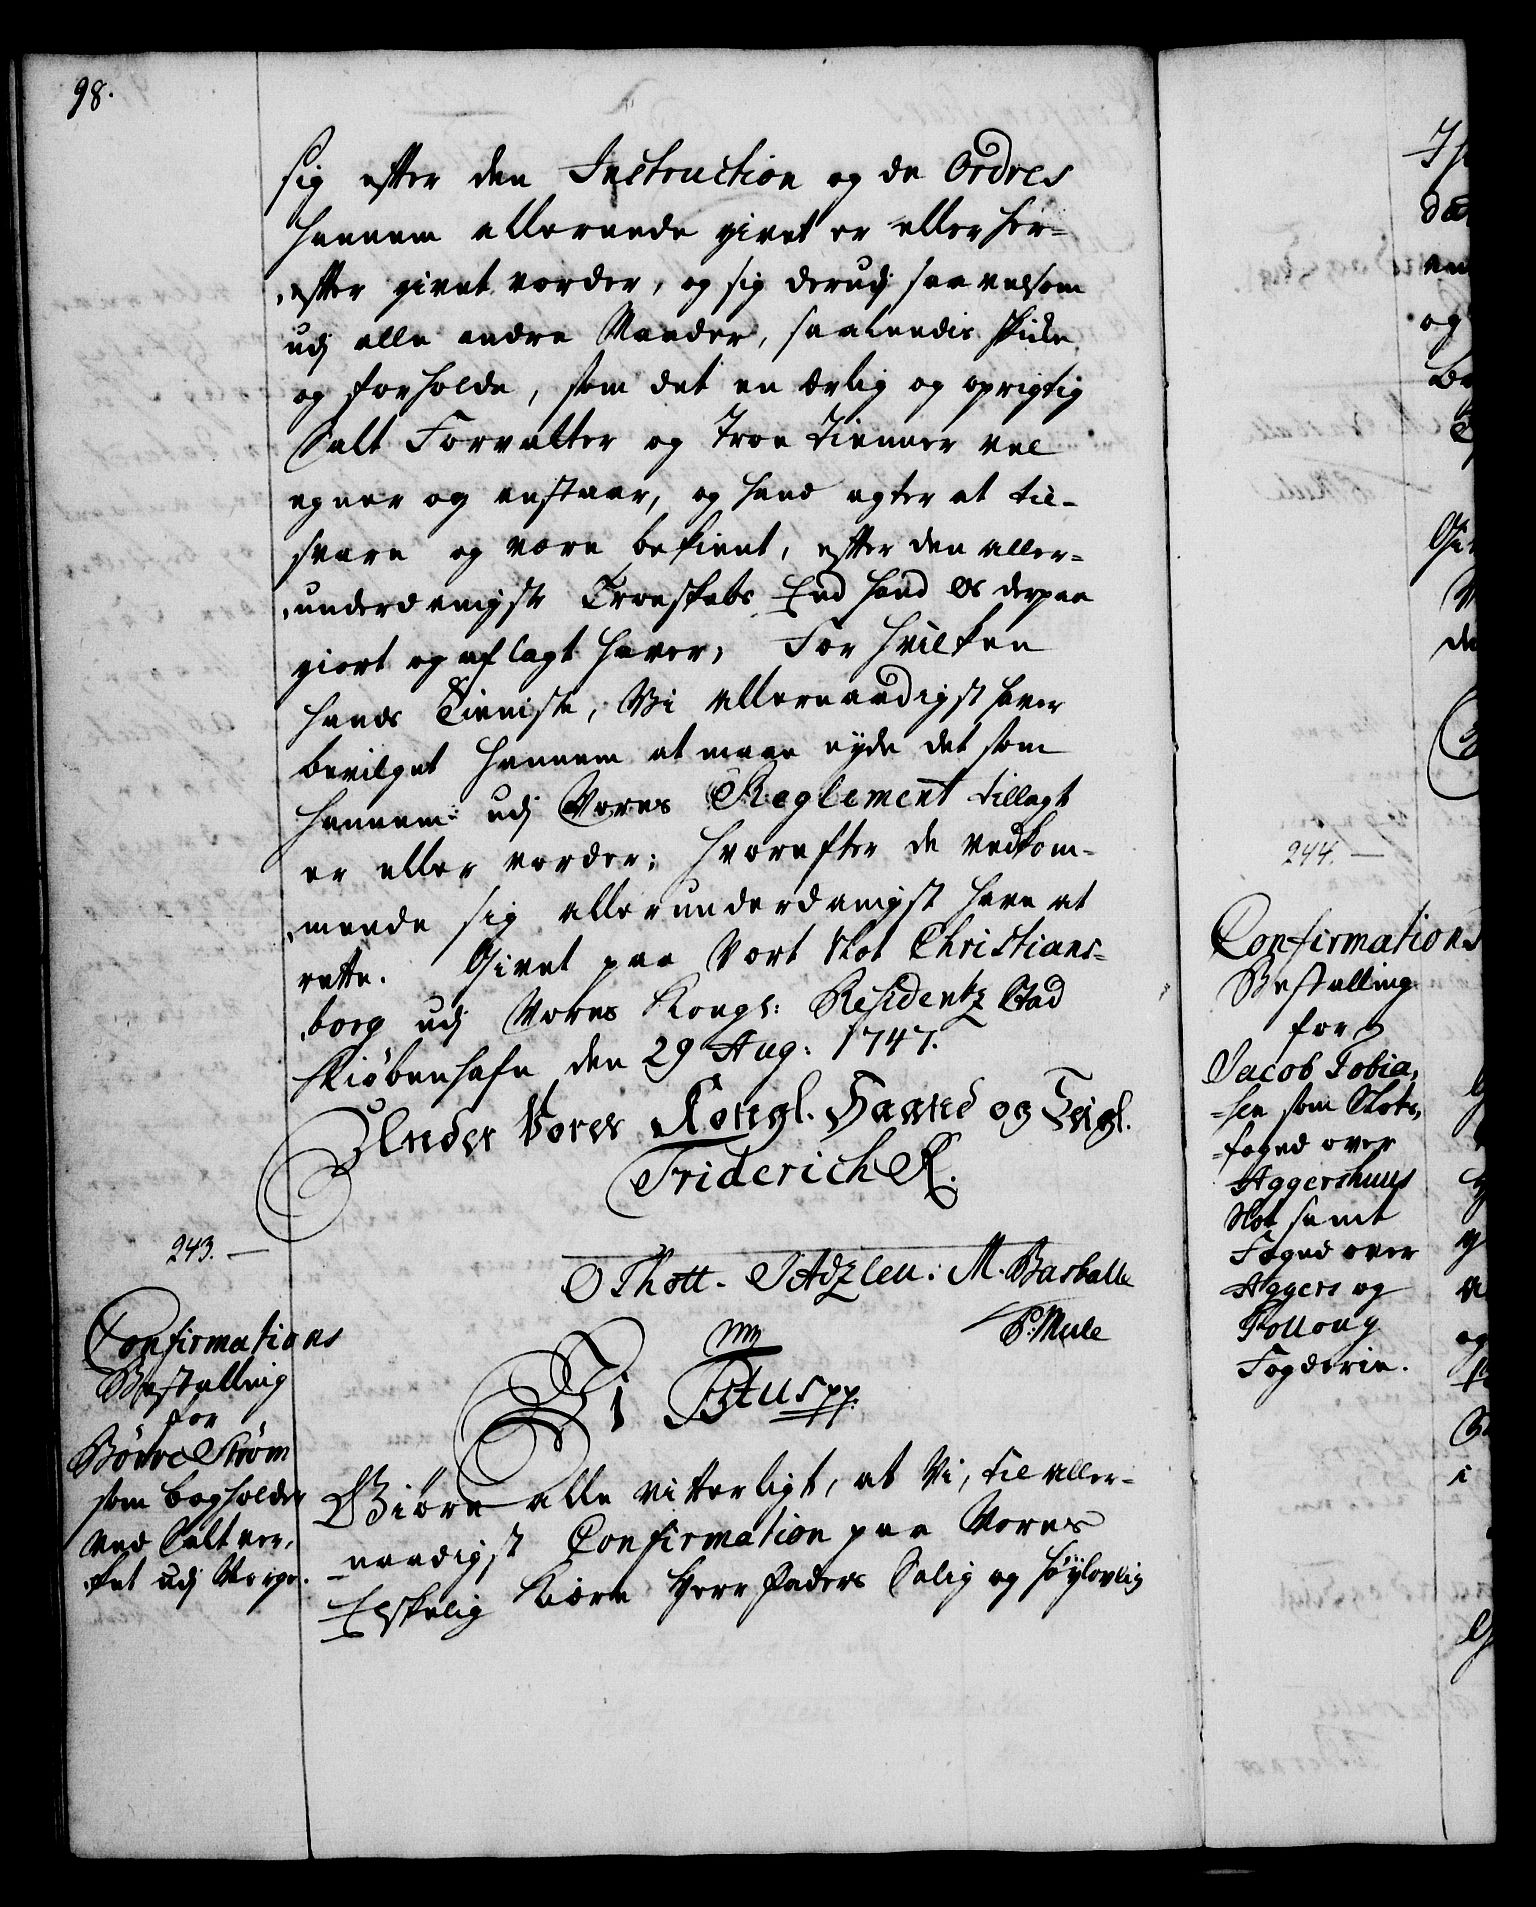 98.
sig efter den Instruction og de Ordres
hannem allereede givet er eller her-
efter givet vorder, og sig derudj saavelsom
udj alle andre Maader, saaleedis skicke
og forholde, som det en ærlig og oprigtig
Salt Forvalter og Troe Tienner vel
egner og anstaar, og hand agter at til-
svare og være bekient, efter den aller-
underdanigste Troeskabs Eed hand os derpaa
giort og aflagt haver; For hvilken
hands Tieniste, Vi allernaadigst haver
bevilget hannem at maae nyde det som
hannem udj Vores Reglement tillagt
er eller vorder; hvorefter de vedkom-
mende sig allerunderdanigst have at
rette. Givet paa Vort Slot Christians-
borg udj Vores Kongl: Residentz Stad
Kiøbenhafn den 29 Aug: 1747.
Under Vores Kongl. Haand og Seigl.
Friderich R.
O Thott. M. Barballe
P. Mule
243.
Confirmations
Bestalling
for
Børre Strøm
som bogholder
ved Saltver-
ket udj Norge.
Vi F5tus pp.
Giøre alle vitterligt, at Vi, til aller-
naadigst Confirmation paa Vores
Elskelig Kiære Herr Faders Salig og høylovlig
244.
Confirmations
Bestalling
for
Jacob Tobia-
sen som Slots-
foged over
Aggershuus
Slot samt
Foged over
Aggers og
Follong
Fogderie.